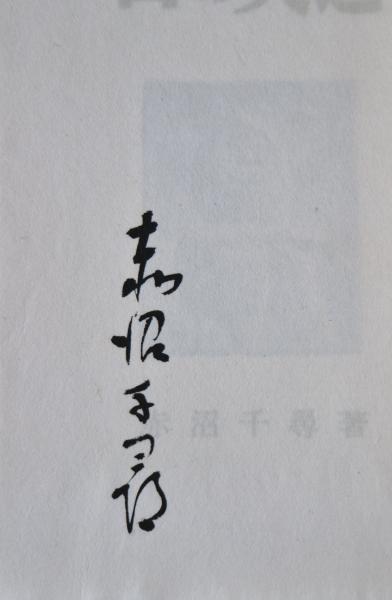 赤沼千尋
赤沼千尋著